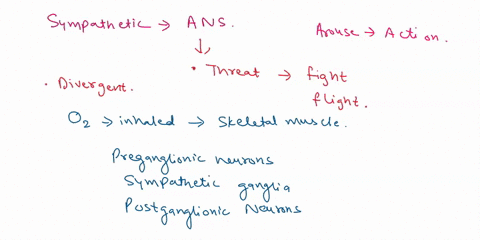 Sympathetic → ANS.
Arouse → Action.
↓
• Threat → fight
flight.
• Divergent.
O₂ → inhaled → Skeletal muscle.
Preganglionic neurons
Sympathetic ganglia
Postganglionic Neurons